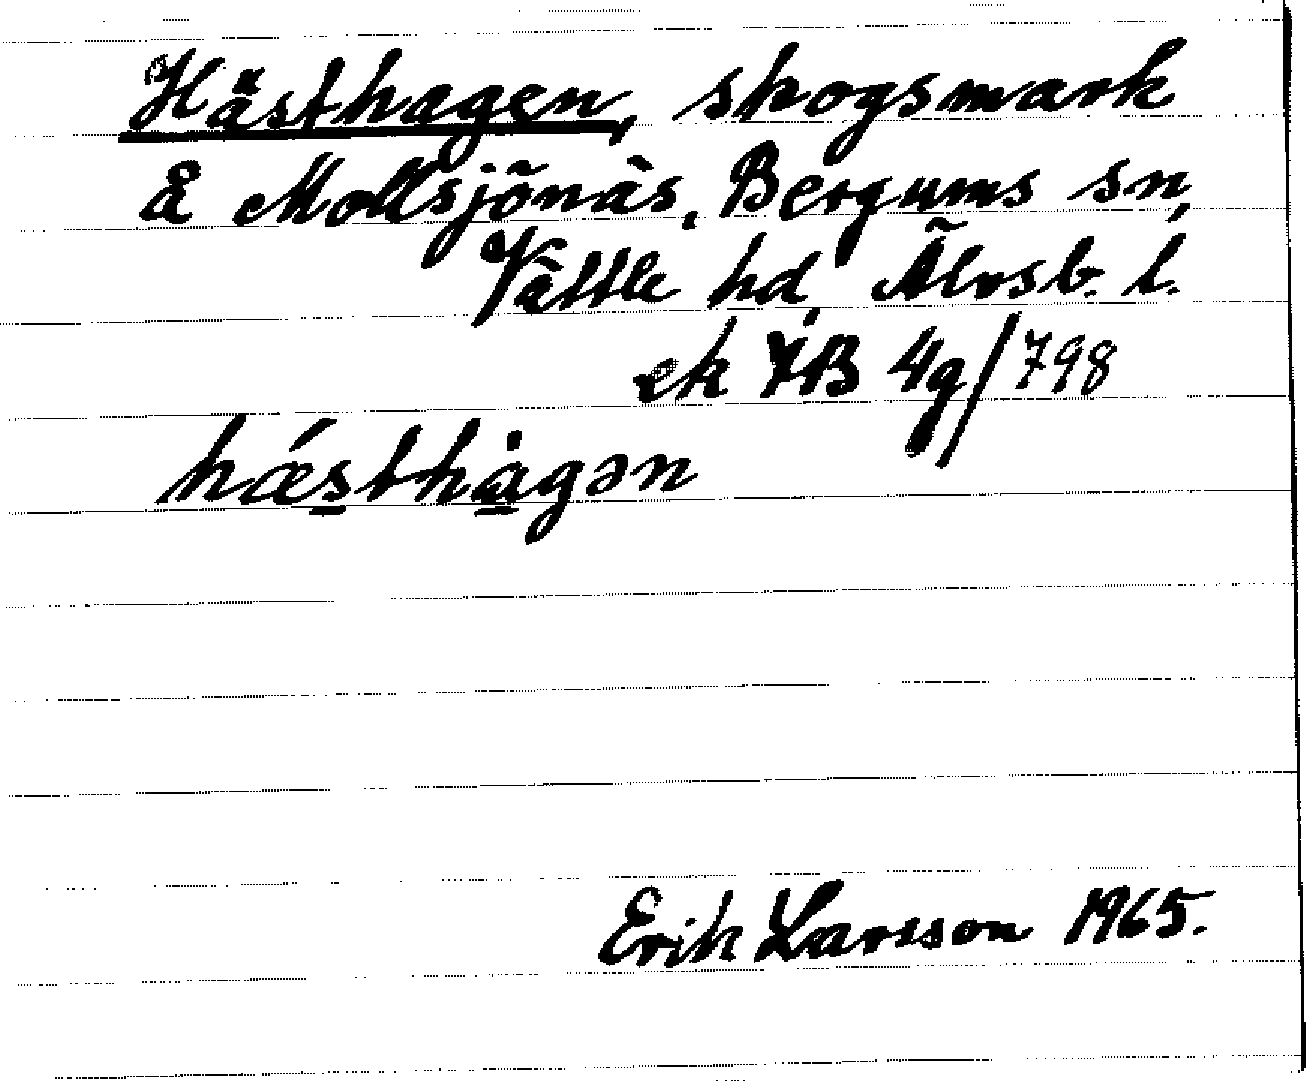 Hästhagen, skogsmark
å Mollsjönäs, Bergums sn,
Vättle hd, Älvsb. l.
ek 7B 4g/798
hǽsthågən
Erik Larsson 1965.